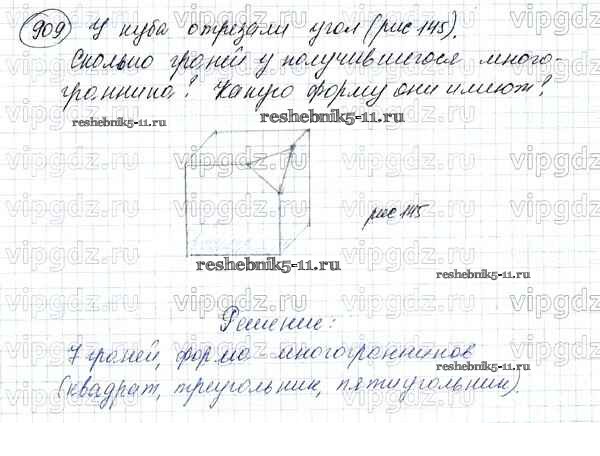 909 У куба отрезали угол (рис 145).
Сколько граней у получившегося много-
гранника? Какую форму они имеют?
reshebnik5-11.ru
reshebnik5-11.ru
рис 145
reshebnik5-11.ru
reshebnik5-11.ru
Решение:
7 граней, форма многогранников
(квадрат, треугольник, пятиугольник).
reshebnik5-11.ru
vipgdz.ru